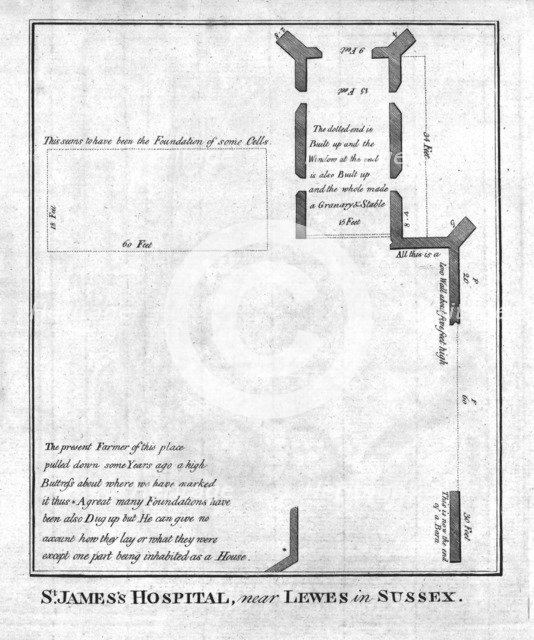 8
9 Feet
4
15 Feet
34 Feet
This seems to have been the Foundation of some Cells
18 Feet
60 Feet
The dotted end is
Built up and the
Window at the end
is also Built up
and the whole made
a Granary & Stable
15 Feet
8 - 4
6
All this is a
low Wall about five feet high
F
20
F
60
30 Feet
This is now the end
of a Barn
The present Farmer of this place
pulled down some Years ago a high
Buttress about where we have marked
it thus * A great many Foundations have
been also Dug up but He can give no
account how they lay or what they were
except one part being inhabited as a House.
*
St. JAMES'S HOSPITAL, near LEWES in SUSSEX.